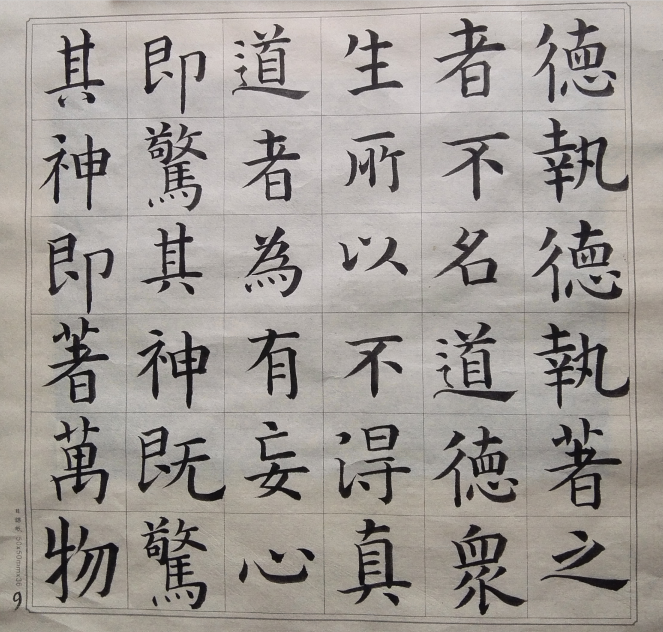 德執德執著之
者不名道德衆
生所以不得真
道者為有妄心
即驚其神既驚
其神即著萬物
9